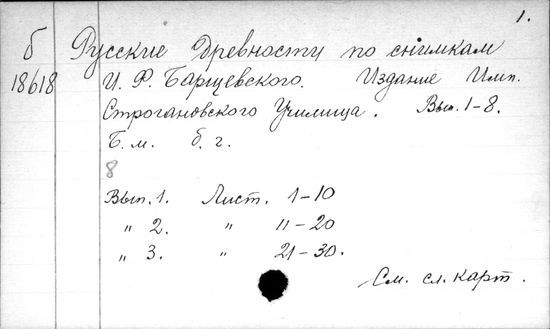 1.
б
18618
Русские древности по снимкам
И. Ф. Барщевского. Издание Имп.
Строгановского Училища. Вып. 1-8.
Б. м. б. г.
8
Вып. 1. Лист. 1-10
" 2. " 11-20
" 3. " 21-30.
См. сл. карт.